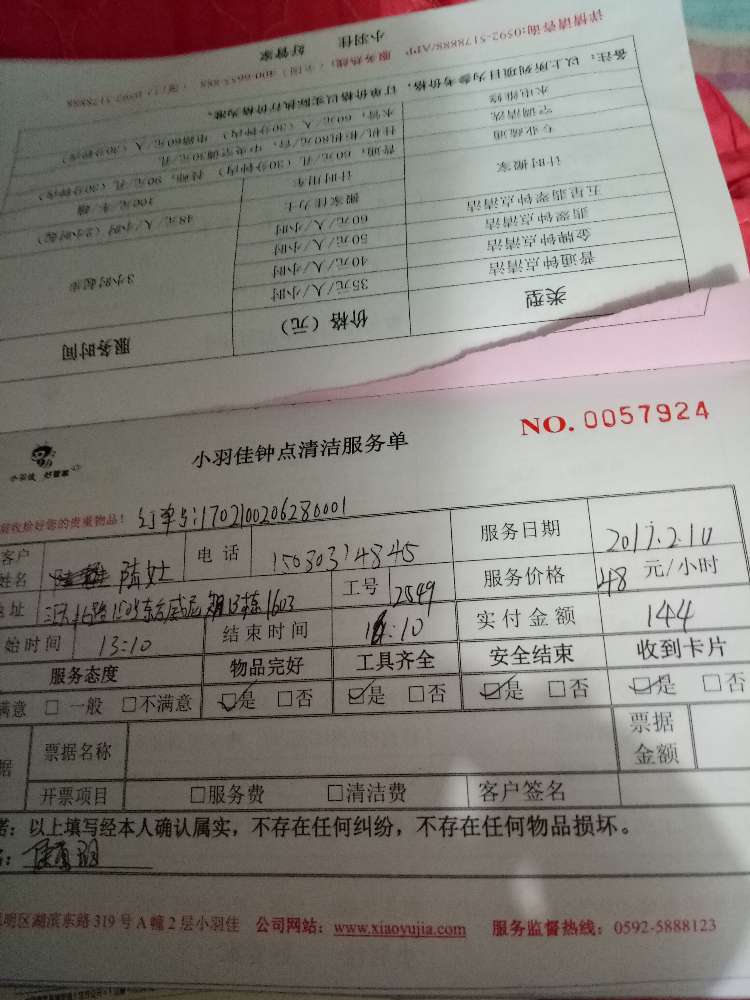 详情请咨询:0592-5178888/APP
小羽佳 好管家 服务热线:(全国)400-6655-888 (厦门)0592-5178888
备注:以上所列项目为参考价格,订单价格以实际执行价格为准。
水电维修 水管,60元/人(30分钟内) 电路60元/人(30分钟内)
空调清洗 挂机/柜机80元/台,中央空调30元/孔
专业疏通 普通,60元/孔(30分钟内) 特师,90元/孔(30分钟内)
计时搬家 计时用车 100元/车·趟
搬家佳力士 48元/人/小时(2小时起)
五星翡翠钟点清洁 60元/人/小时
翡翠钟点清洁 50元/人/小时
金牌钟点清洁 40元/人/小时
普通钟点清洁 35元/人/小时 3小时起步
类型 价格(元) 服务时间
小羽佳 好管家
小羽佳钟点清洁服务单
NO. 0057924
收拾好您的贵重物品! 订单号:1702100206280001
客户
姓名 电话 15030314845 服务日期 2017.2.10
地址 1603 工号 2549 服务价格 48 元/小时
始时间 13:10 结束时间 16:10 实付金额 144
服务态度 物品完好 工具齐全 安全结束 收到卡片
满意 □一般 □不满意 ☑是 □否 ☑是 □否 ☑是 □否 ☑是 □否
据 票据名称 票据金额
开票项目 □服务费 □清洁费 客户签名
以上填写经本人确认属实,不存在任何纠纷,不存在任何物品损坏。
明区湖滨东路319号A幢2层小羽佳 公司网站:www.xiaoyujia.com 服务监督热线:0592-5888123